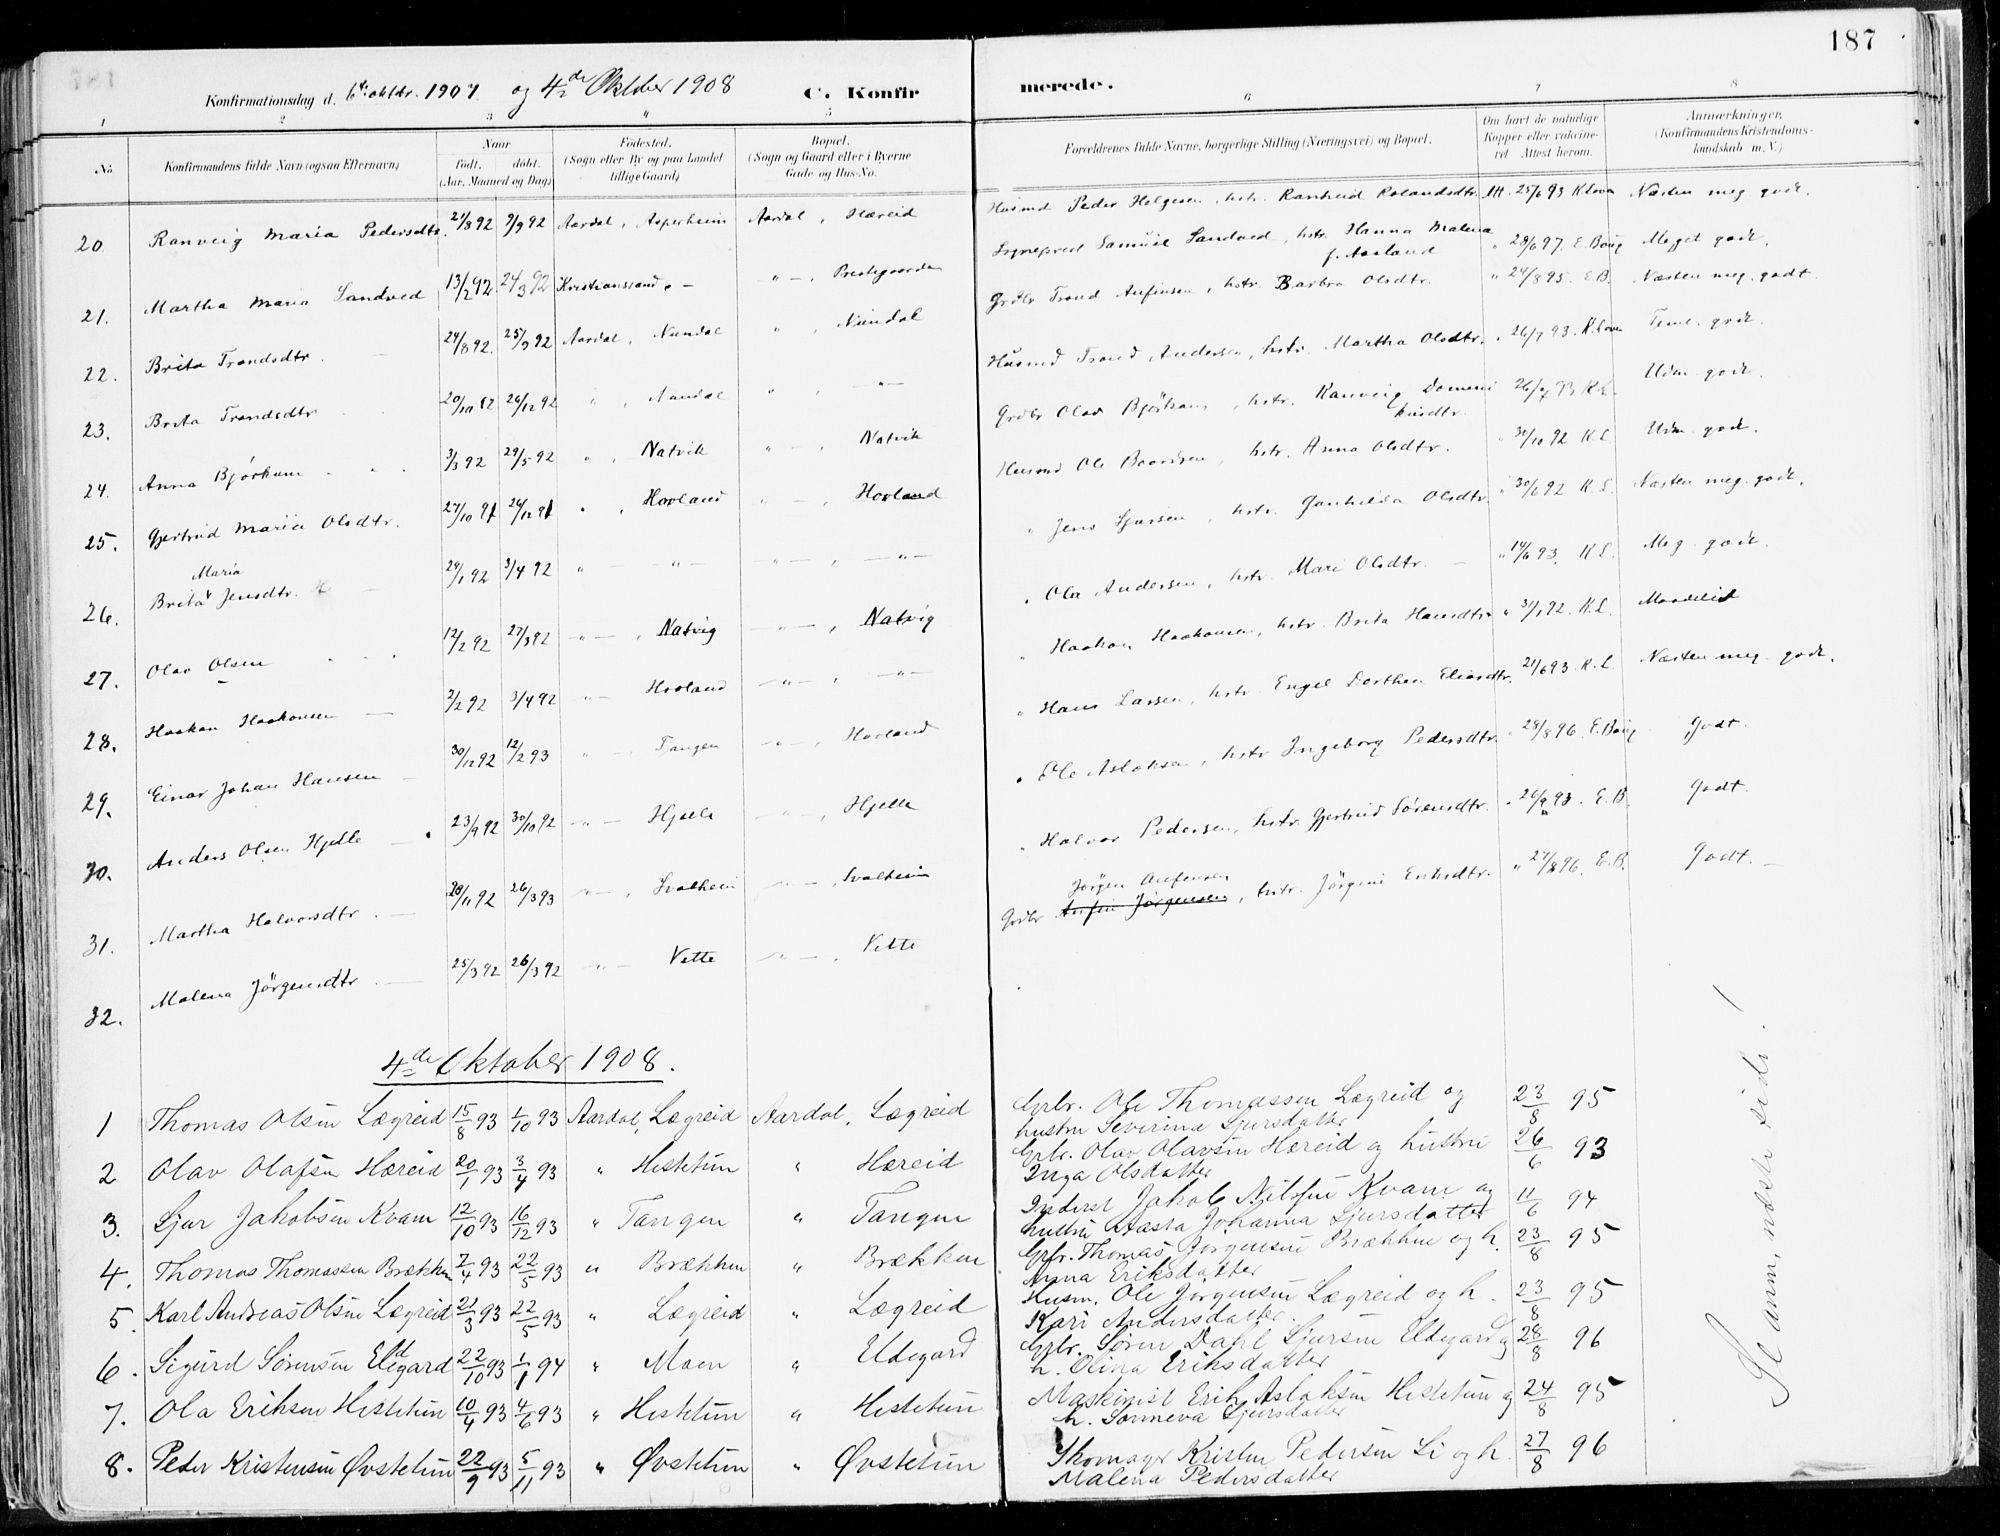 187
Konfirmationsdag d. 6te oktbr. 1907. og 4de Oktober 1908 C. Konfir merede.
1 2 3 4 5 6 7 8
No Konfirmandens fulde Navn (ogsaa Efternavn) Naar født. døbt. (Aar, Maaned og Dag) Fødested. (Sogn eller By og paa Landet tillige Gaard) Bopæl. (Sogn og Gaard eller i Byerne Gade og Hus-No. Forældrenes fulde Navne, borgerlige Stilling (Næringsvei) og Bopæl. Om havt de naturlige Kopper eller vaksineret Attest herom. Anmærkninger. (Konfirmandens Kristendomskundskab m. V.)
20. Ranveig Maria Pedersdtr. 21/8 92 9/9 92 Aardal, Asperheim Aardal, Hæreid Husmd Peder Helgesen, hstr. Ranheid Rolandsdtr. Att. 25/6 93 Næsten meg. godt.
21. Martha Maria Sandved 13/2 92 24/3 92 Kristianssand " — " — , Prestegaarden Samuel Sandved, hstr. Hanna Malena f. Aasland " 28/6 97. E. Bøig Meget godt.
22. Brita Trondsdtr. 24/8 92. 25/9 92 Aardal, Nundal " , Nundal Grdbr Trond Anfinsen, hstr. Barbro Olsdtr. " 24/8 95. E.B. Næsten meg. godt.
23. Brita Trondsdtr. 20/10 92 26/12 92 " , Nundal " , — " — Husmd Trond Andersen, hstr. Martha Olsdtr. " 26/7 93. Teml. godt.
24. Anna Bjørkum 3/3 92 29/5 92 " , Natvik " — , Natvik Grdbr Olav Bjørkum, hstr. Ranveig 26/7 93 K.L. Udm. godt.
25. Gjertrud Maria Olsdtr. 27/10 91 26/12 91 " , Hovland " — , Hovland Husmd Ole Baardsen, hstr. Anna Olsdtr. " 30/10 92 K.L. Udm. godt.
26. Brita Maria Jensdtr. 29/1 92 3/4 92 " — " — — " — , — " — " Jens Sjursen, hstr. Gunhilda Olsdtr. " 30/6 92 K.L. Næsten meg. godt.
27. Olav Olsen 12/2 92 27/3 92 " — , Natvig — " — , Natvig " Ola Andersen, hstr. Mari Olsdtr. — " 14/6 93. K.L. Meg. godt.
28. Haakon Haakonsen — 2/2 92 3/4 92 " — Hovland — " — , — " — " Haakon Haakonsen, hstr. Brita Hansdtr. " 31/1 92. K.L. Maadelid
29. Einar Johan Hansen — 30/12 92 12/2 93 " — , Tangen — " — , Hovland " Hans Larsen, hstr. Engel Dorthea Eliasdtr. 21/6 93. K.L. Næsten meg. godt.
30. Anders Olsen Hjelle — 23/9 92 30/10 92 — " — Hjelle — " — , Hjelle " Ole Aslaksen, hstr Ingeborg Pedersdtr. " 28/8 96. E. Bøig Godt.
31. Martha Halvorsdtr. — 20/11 92 26/3 93 — " — , Svalheim — " — , Svalheim " Halvor Pedersen, hstr. Gjertrud Sørensdtr. " 26/9 93. E.B. Godt.
32. Malena Jørgensdtr. — 25/3 92 26/3 92 — " — Vette — " — , Vette Grdbr Anfin Jørgensen Jørgen Anfinsen, hstr. Jørgine Eriksdtr. " 27/8 96. E.B. Godt. —
4de Oktober 1908.
1 Thomas Olsen Lægreid 15/8 93 1/10 93 Aardal, Lægreid Aardal, Lægreid Grbr. Ole Thomassen Lægreid og hustru Severina Sjursdatter 23/8 95
2 Olav Olafsen Hæreid 20/1 93 3/4 93 " Hestetun " Hæreid Grbr. Olav Olavsen Hæreid og hustru Inga Olsdatter 26/6 93
3. Sjur Jakobsen Kvam 12/10 93 16/12 93 " Tangen " Tangen Inderst Jakob Nilssen Kvam og hustru Aasta Johanna Sjursdatter 11/6 94
4. Thomas Thomassen Brækken 7/4 93 22/5 93 " Brækken " Brækken Grbr. Thomas Jørgensen Brækken og h. Anna Eriksdatter 23/8 95
5. Karl Andreas Olsen Lægreid 21/3 93 22/5 93 " Lægreid " Lægreid Husm. Ole Jørgensen Lægreid og h. Kari Andersdatter. 23/8 95
6. Sigurd Sørensen Eldegard 22/10 93 1/1 94 " Moen " Eldegard Grbr. Søren Dahl Sjursen Eldegard og h. Olina Eriksdatter 28/8 96
7. Ola Eriksen Hestetun 10/4 93 4/6 93 " Hestetun " Hestetun Maskinist Erik Aslaksen Hestetun og h. Sønneva Sjursdatter 24/8 95
8. Peder Kristensen Øvstetun 22/9 93 5/11 93 " Øvstetun " Øvstetun Skomager Kristen Pedersen Li og h. Malena Pedersdatter 27/8 96
Se anm. næste side!